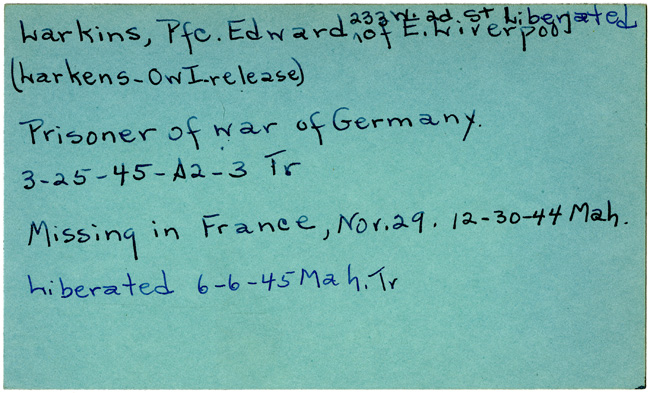 Larkins, Pfc. Edward, of E. Liverpool Liberated
(Larkens-OWI-release)
Prisoner of war of Germany.
3-25-45-A2-3 Tr
Missing in France, Nov. 29. 12-30-44 Mah.
Liberated 6-6-45 Mah. Tr